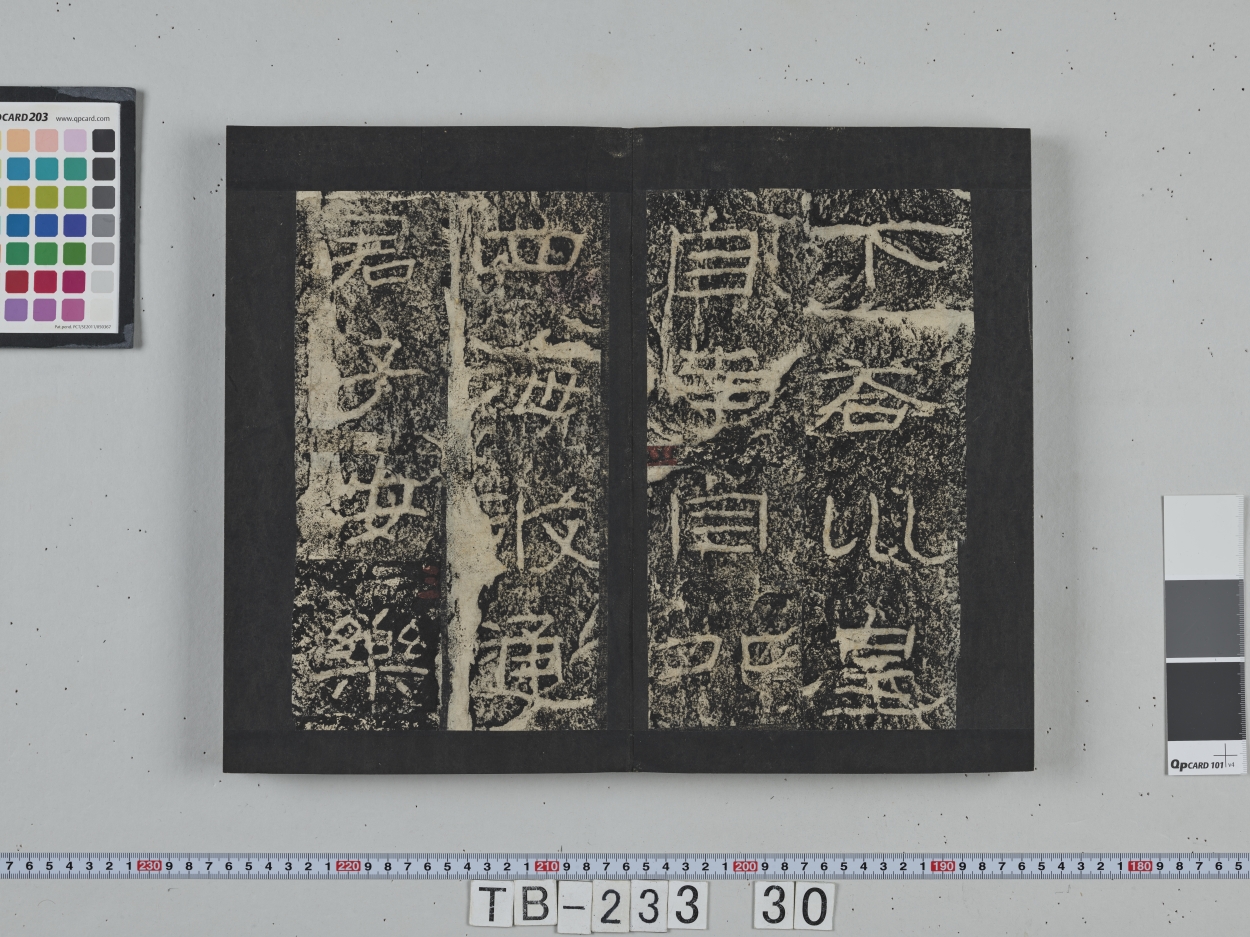 下荅巛皇
自南自北
四海攸通
君子安樂
PCARD203 www.qpcard.com
QpCARD 101 v4
7 6 5 4 3 2 1 230 9 8 7 6 5 4 3 2 1 220 9 8 7 6 5 4 3 2 1 210 9 8 7 6 5 4 3 2 1 200 9 8 7 6 5 4 3 2 1 190 9 8 7 6 5 4 3 2 1 180 9 8 7 6 5
TB-233 30